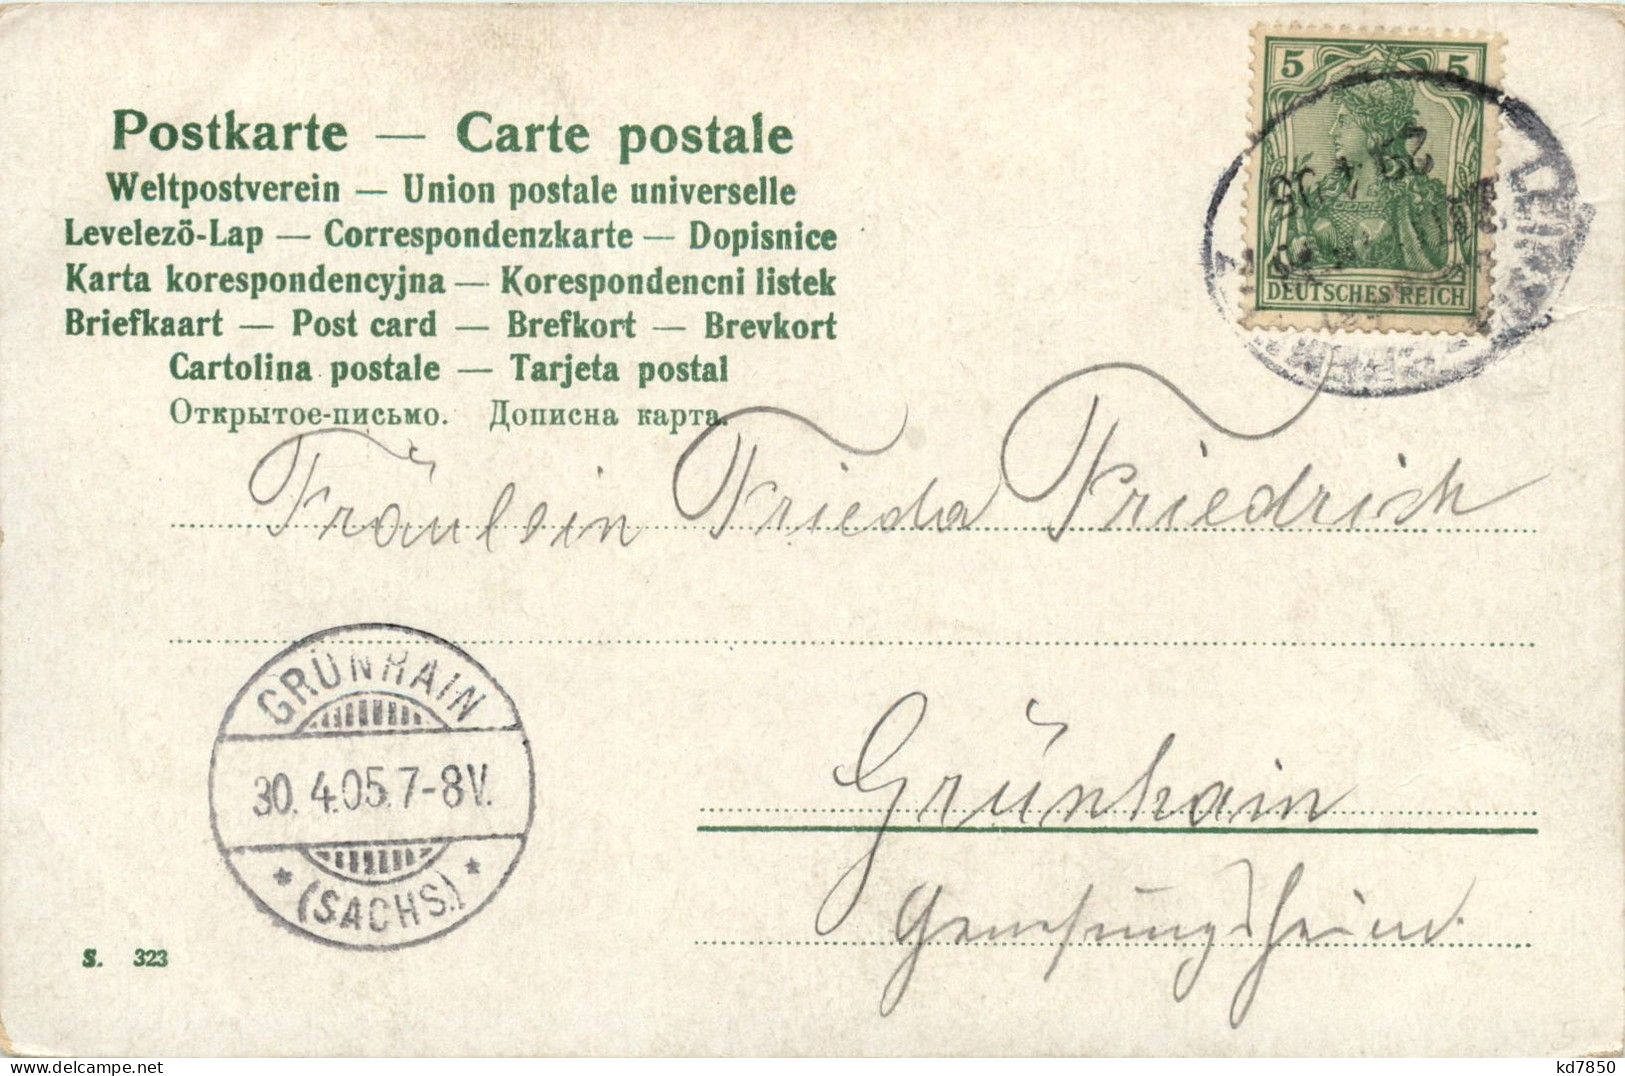 Postkarte — Carte postale
Weltpostverein — Union postale universelle
Levelezö-Lap — Correspondenzkarte — Dopisnice
Karta korespondencyjna — Korespondencni listek
Briefkaart — Post card — Brefkort — Brevkort
Cartolina postale — Tarjeta postal
Открытое-письмо. Дописна карта.
5 5
DEUTSCHES REICH
29 4 05
Fräulein Frieda Friedrich
GRÜNHAIN
30.4.05.7-8V.
* (SACHS.) *
Grünhain
Genesungsheim.
S. 323
kd7850